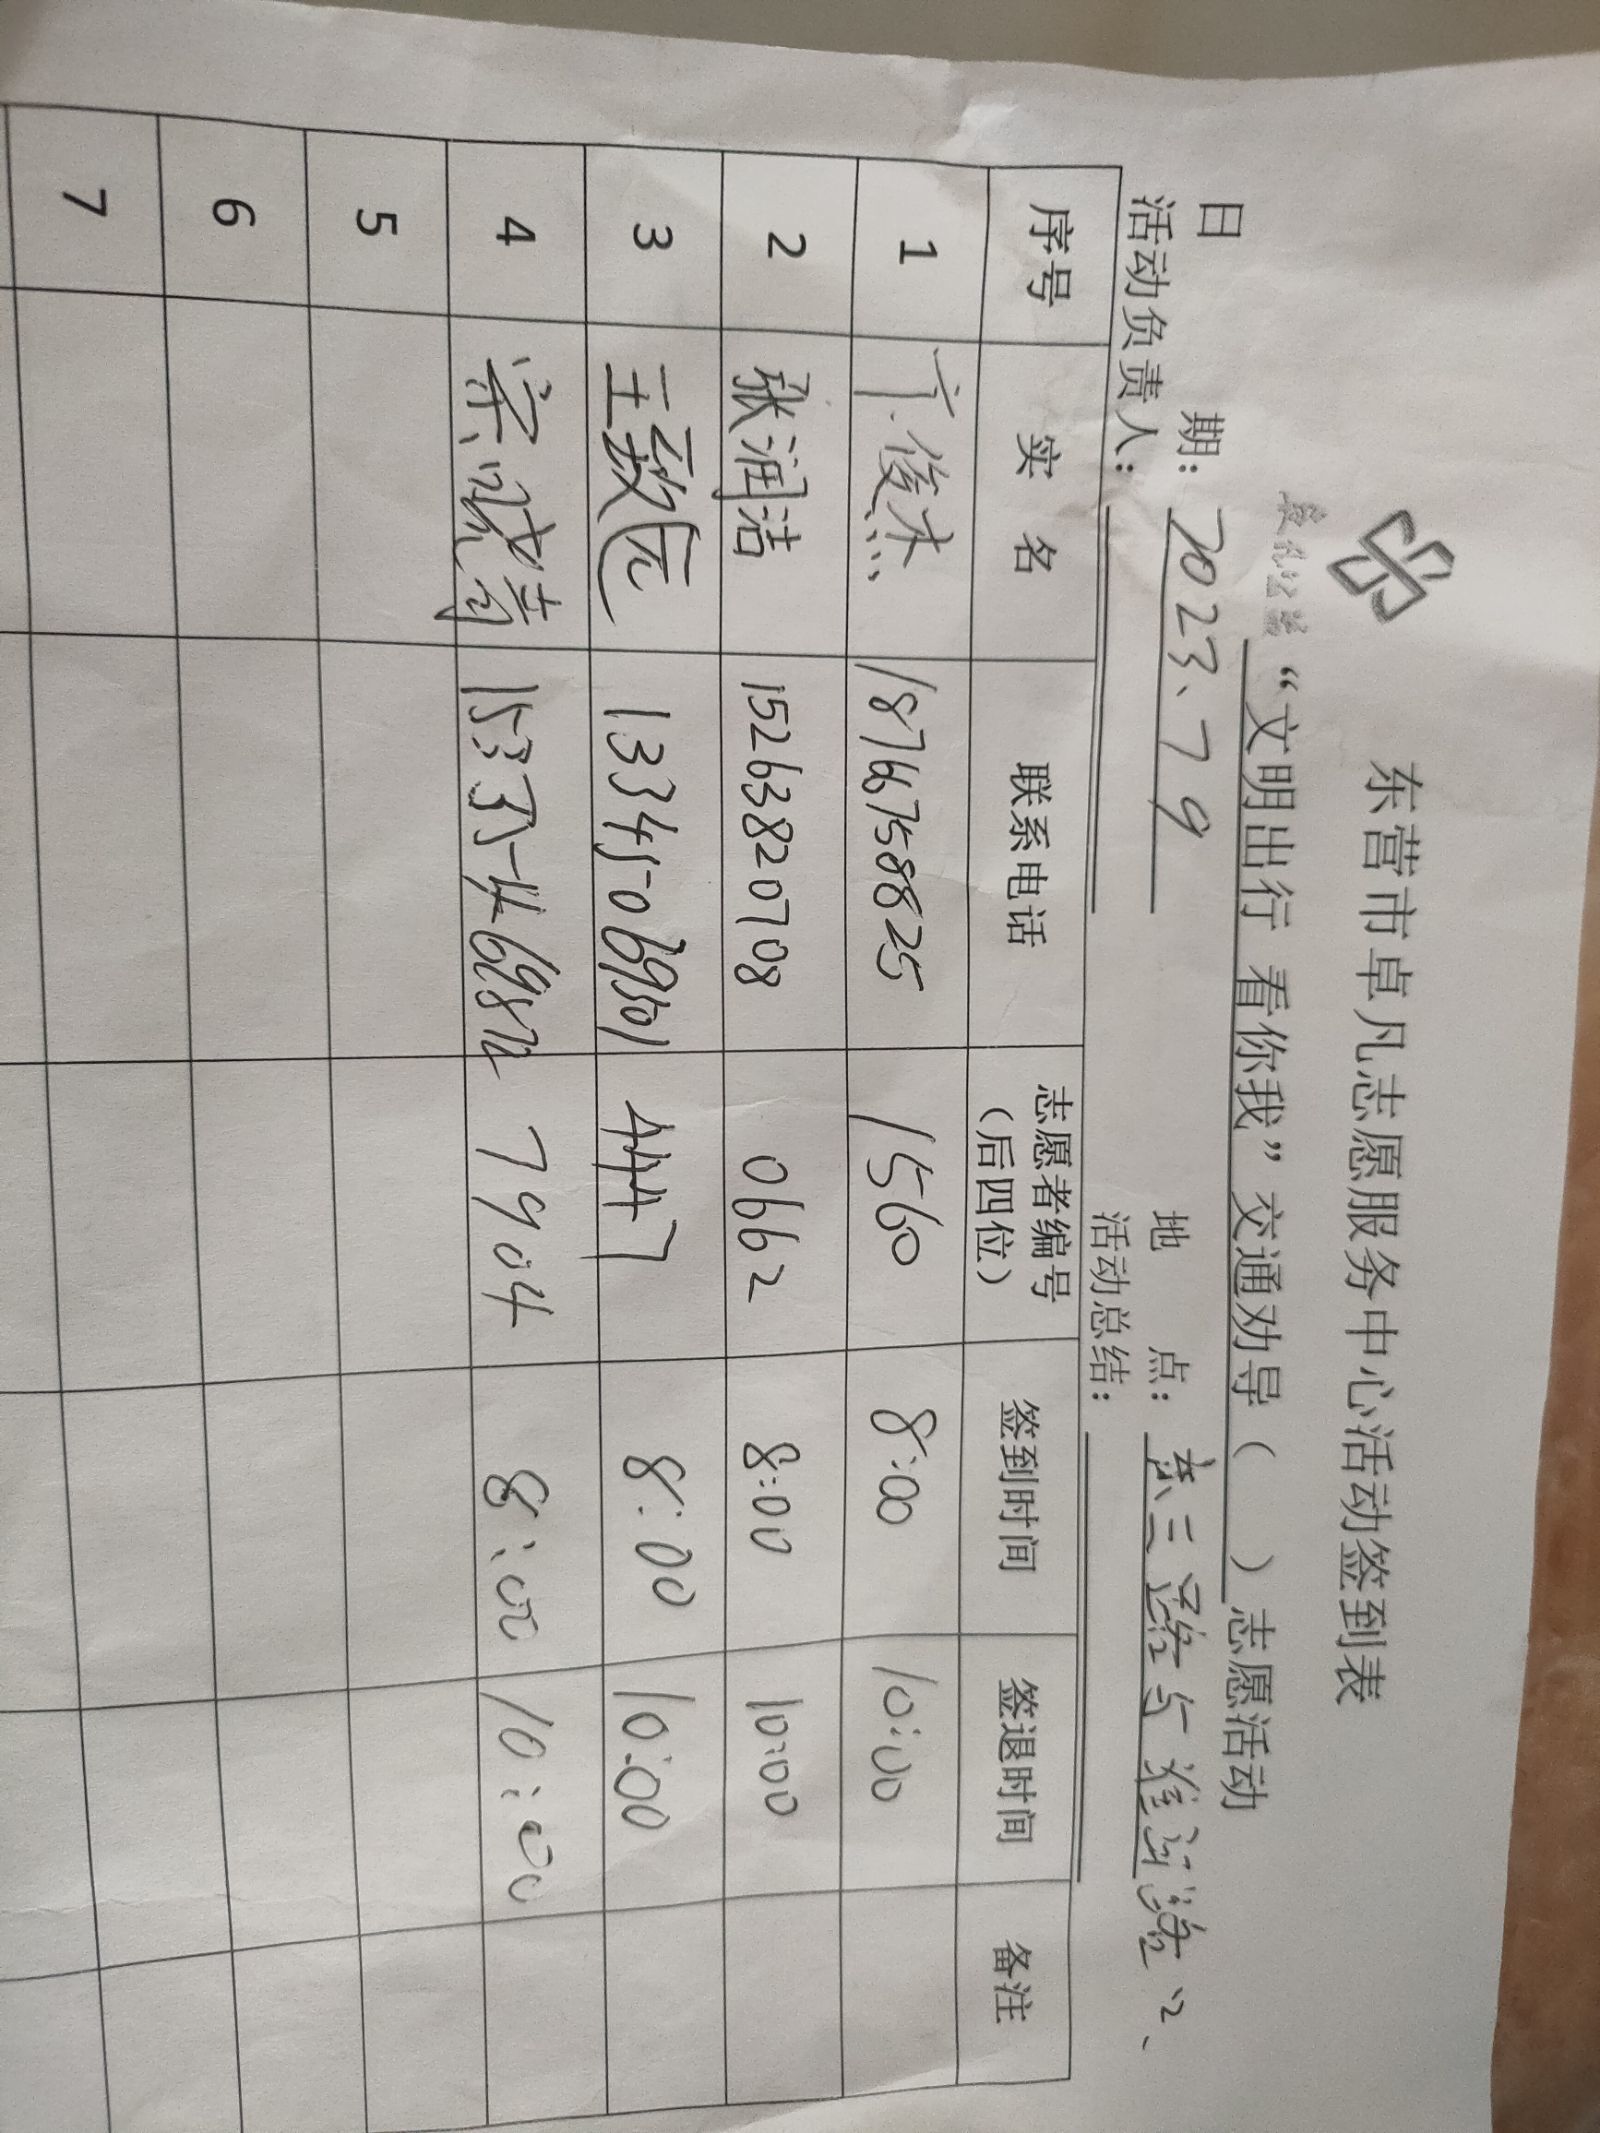 东营市卓凡志愿服务中心活动签到表
“文明出行 看你我”交通劝导（ ）志愿活动
日 期：2023、7 9 地 点：东三路与淮河路
活动负责人： 活动总结：
序号 实 名 联系电话 志愿者编号（后四位） 签到时间 签退时间 备注
1 俊杰 18766758825 1560 8:00 10:00
2 张润洁 15263820708 0662 8:00 10:00
3 王致远 4447 8:00 10:00
4 7904 8:00 10:00
5
6
7